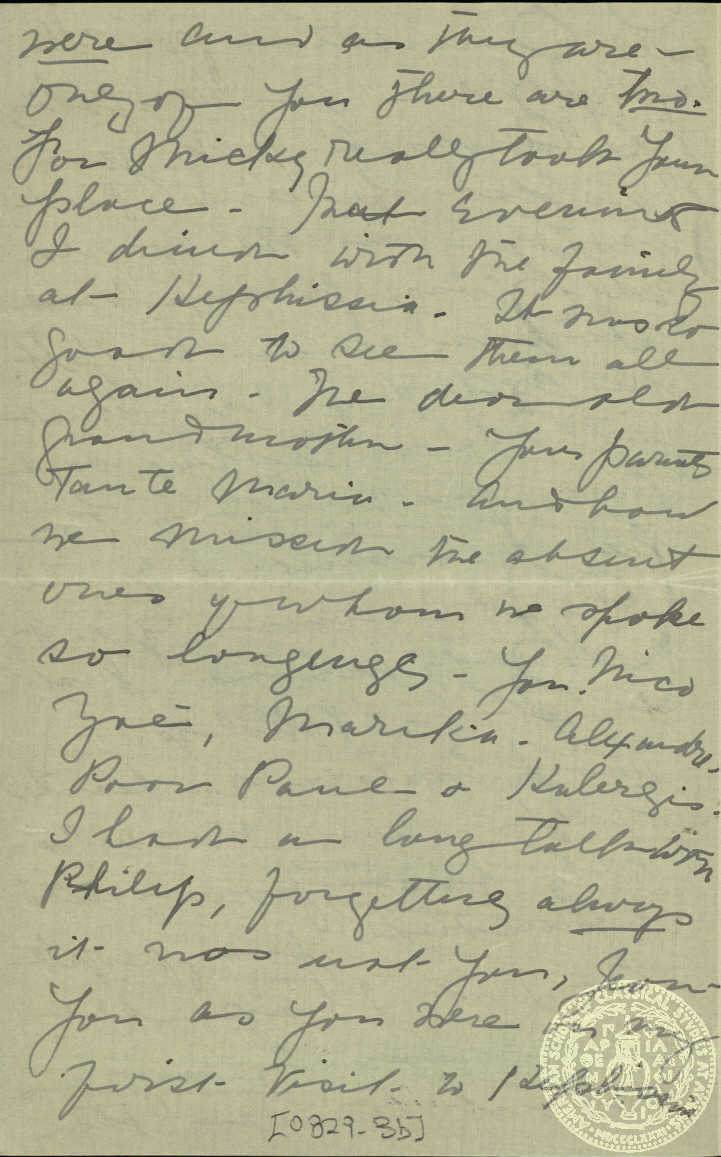 were and as they are -
one, of you there are two.
For Micky really took your
place - That evening
I dined with the family
at Kephissia. It was so
good to see them all
again. The dear old
grandmother - your parents
Tante Maria. And how
we missed the absent
ones of whom we spoke
so longingly - You. Nico
Zoë, Marika. Alexandre.
Poor Paul & Kalergis.
I had a long talk with
Philip, forgetting always
it was not you, Jean -
You as you were in my
first visit to Kephissia
[0829-3b]
MDCCCLXXXI